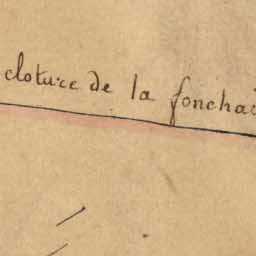 cloture de la fonchai